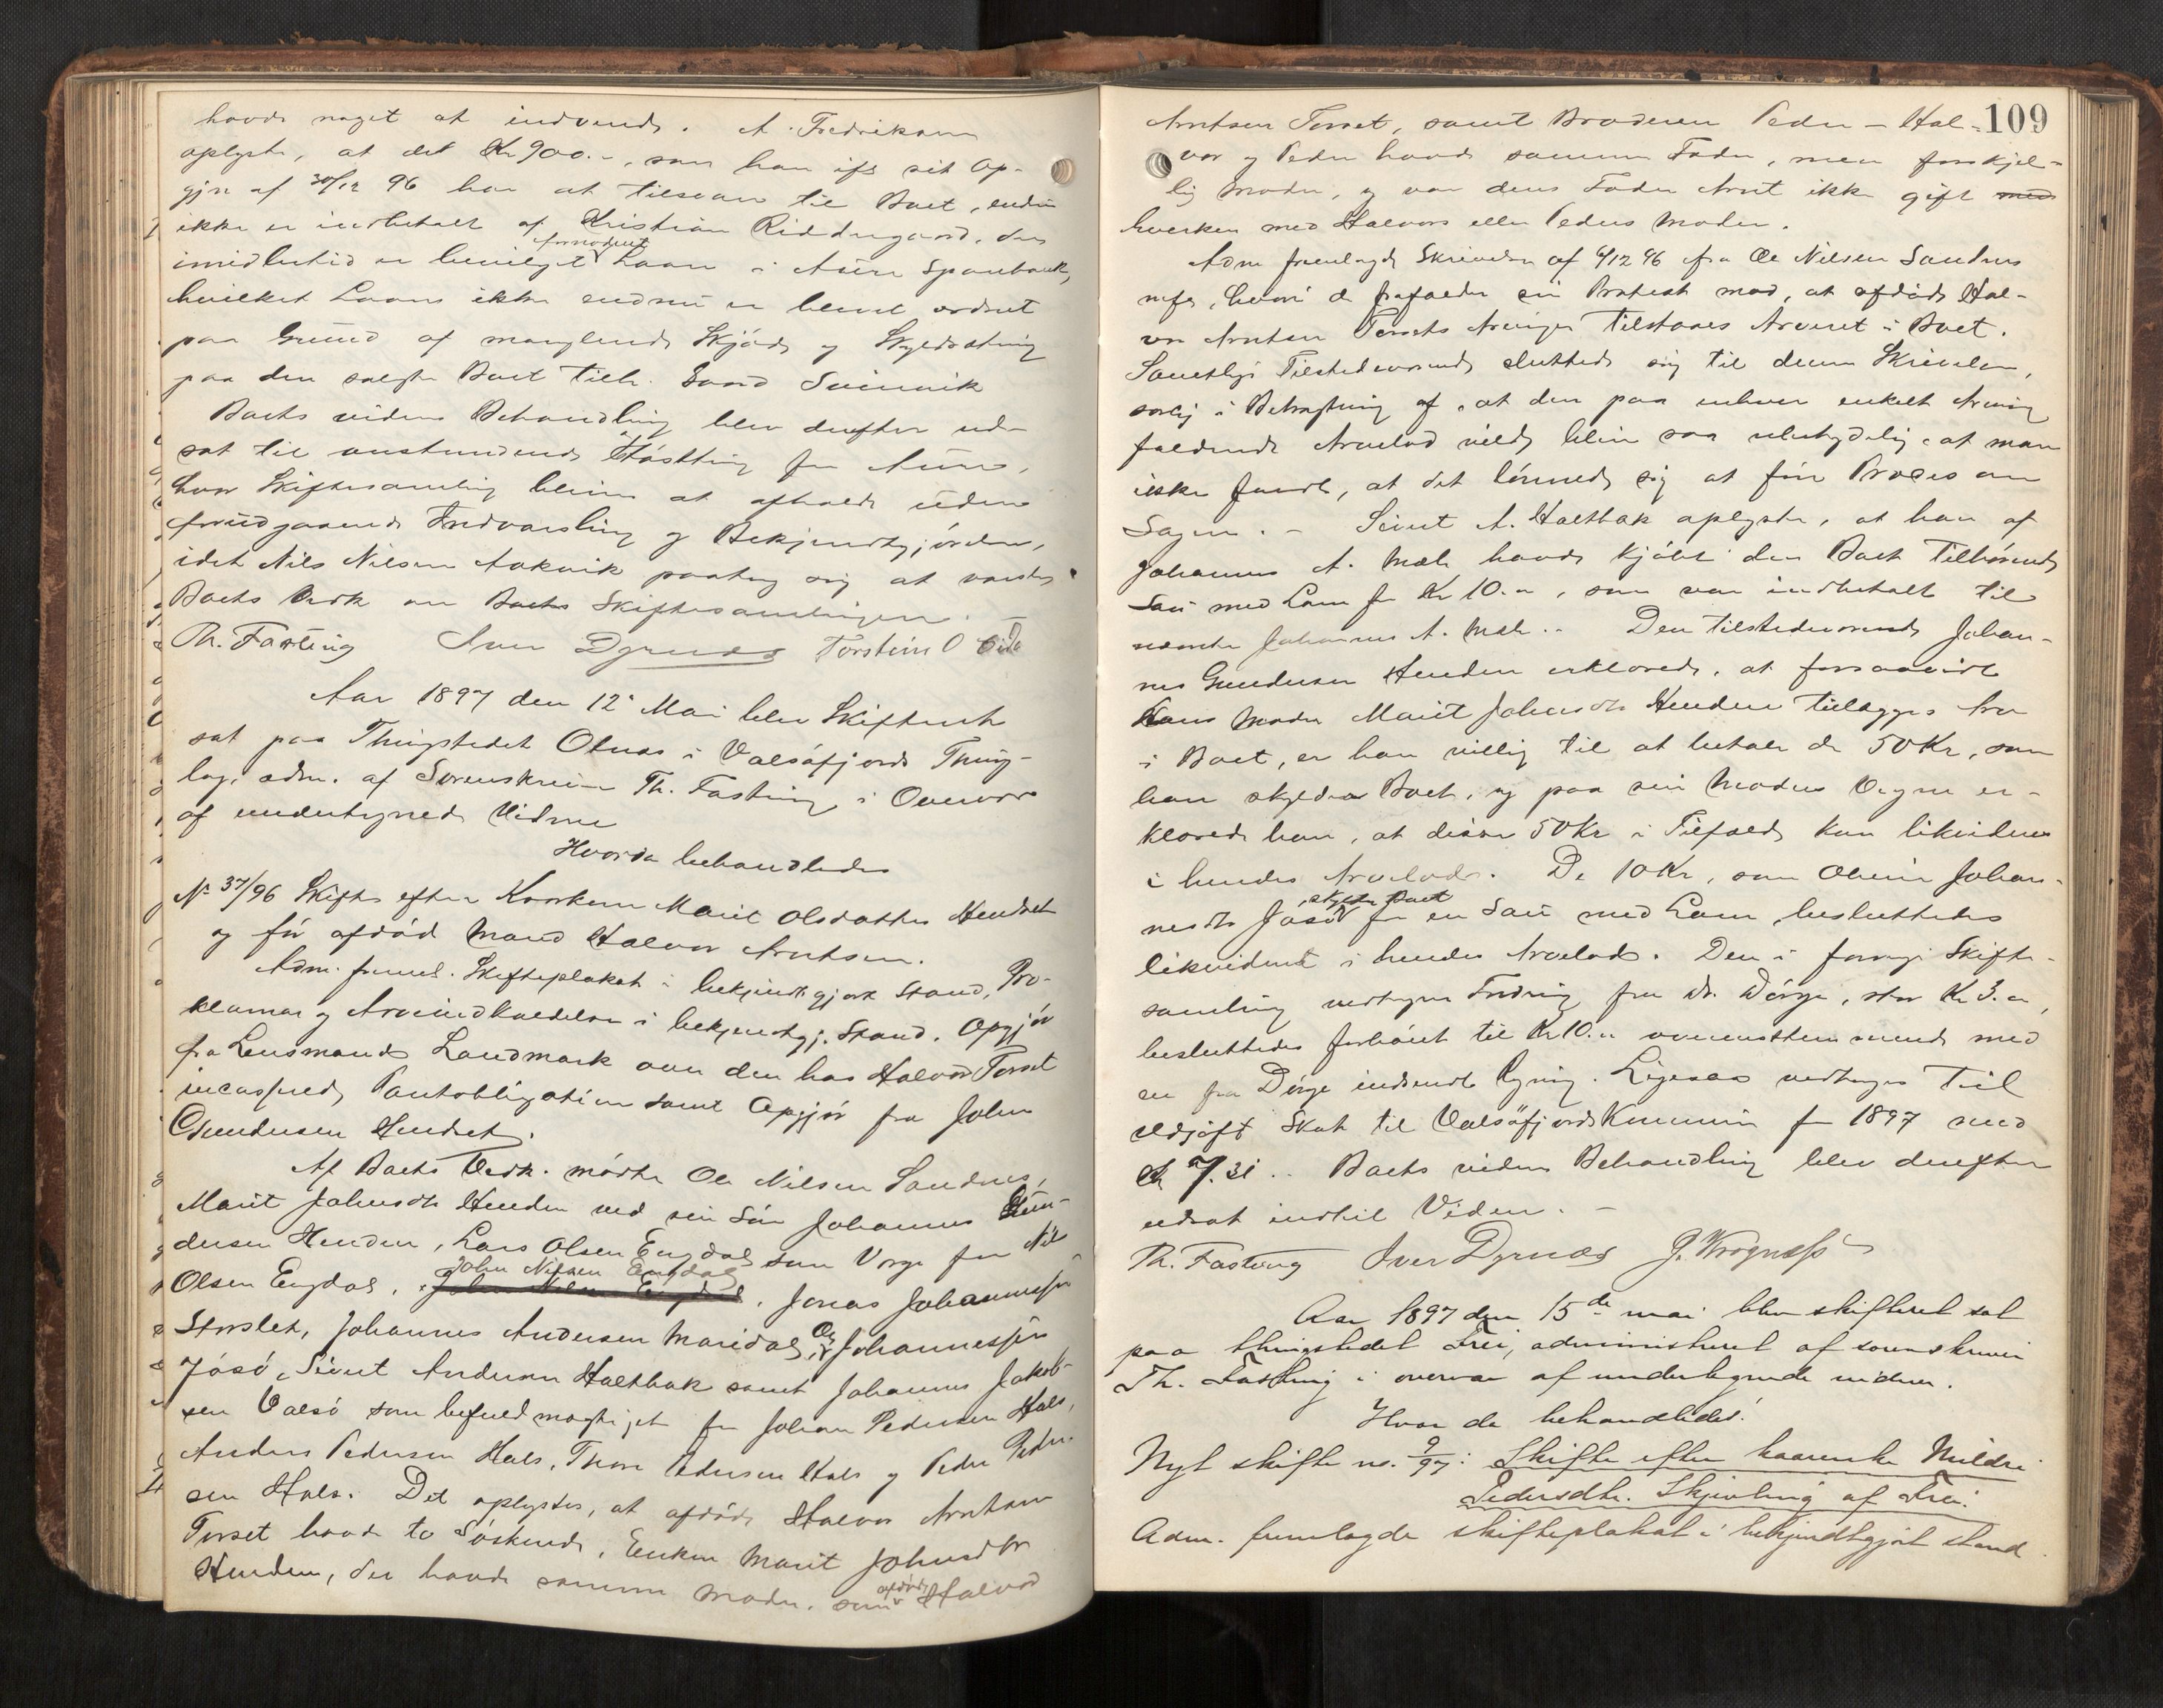 havde noget at indvende. A. Fredriksen
oplyste, at det Kr 900.-, som han ifg sit Op-
gjør af 30/12 96 har at tilsvare til Boet, endnu
ikke er indbetalt af Kristian Riddergaard, der
imidlertid er bevilget fornødent Laan i Aure Sparebank,
hvilket Laan ikke endnu er blevet ordnet
paa Grund af manglende Skjøde og Skyldsætning
paa den solgte Boet tilh. Gaard Svinvik
Boets videre Behandling blev derefter ud-
sat til anstundende Høstthing for Aure,
hvor Skiftesamling bliver at afholde uden
forudgaaende Indvarsling og Bekjendtgjørelse,
idet Nils Nilsen Aakvik paatog sig at varsle
Boets Vedk. om Boets Skiftesamlingen. -
Th. Fasting Iver Dyrnæs Torstein O Eide
Aar 1897 den 12' Mai blev Skifteret
sat paa Thingstedet Otnæs i Valsøfjords Thing-
lag, adm. af Sorenskriver Th. Fasting i Overvær
af undertegnede Vidner
Hvorda behandledes
No 37/96 Skifte efter Kaarkone Marit Olsdatter Hendset
og før afdød Mand Halvor Arntsen.
Adm. freml. Skifteplakat i bekjendtgjort Stand, Pro-
klamas og Arveindkaldelse i bekjendtgj. Stand. Opgjør
fra Lensmand Landmark over den hos Halvor Torset
incasserede Pantobligation samt Opgjør fra John
Gundersen Hendset.
Af Boets Vedk. mødte Ole Nilsen Sandnes,
Marit Johnsdtr Henden ved sin Søn Johannes Gun-
dersen Henden, Lars Olsen Engdal som Verge for Nils
Olsen Engdal, John Nilsen Engdal, Jonas Johannessen
Storslet, Johannes Andersen Maridal, Ole Johannessen
Jøsø, Sivert Andersen Haltbak samt Johannes Jakob-
sen Valsø som befuldmægtiget for Johan Pedersen Hals,
Anders Pedersen Hals, Thore Pedersen Hals og Peder Peder-
sen Hals. Det oplystes, at afdøde Halvor Arntsen
Torset havde to Søskende, Enken Marit Johnsdtr
Henden, der havde samme Moder som afdøde Halvor
109
Arntsen Torset, samt Broderen Peder - Hal-
vor og Peder havde samme Fader, men forskjel-
lig Moder, og var deres Fader Arnt ikke gift med
hverken med Halvors eller Peders Moder.
Adm fremlagde Skrivelse af 4/12 96 fra Ole Nilsen Sandnes
mfl, hvori de frafalder sin Protest mod, at afdøde Hal-
vor Arntsen Torsets Arvinger tilstaaes Arveret i Boet.
Samtlige Tilstedeværende sluttede sig til denne Skrivelse,
særlig i Betragtning af, at den paa enhver enkelt Arving
faldende Arvelod vilde blive saa ubetydelig, at man
ikke fandt, at det lønnede sig at føre Proces om
Sagen. - Sivert A. Haltbak oplyste, at han af
Johannes A. Mæle havde kjøbt den Boet tilhørende
Sau med Lam for Kr 10.-, som var indbetalt til
nævnte Johannes A. Mæle. - Den tilstedeværende Johan-
nes Gundersen Henden erklærede, at forsaavidt
hans Moder Marit Johnsdtr Henden tillægges Arv
i Boet, er han villig til at betale de 50 Kr, som
han skylder Boet, og paa sin Moders Vegne er-
klærede han, at disse 50 Kr i Tilfælde kan likvideres
i hendes Arvelod. De 10 Kr, som Oline Johan-
nesdtr Jøsø skylder Boet for en Sau med Lam, besluttedes
likvideret i hendes Arvelod. Den i forrige Skifte-
samling vedtagne Fordring fra Dr. Dørge, stor Kr 3.-,
besluttedes forhøiet til Kr 10.- overensstemmende med
en fra Dørge indsendt Regning. Ligesaa vedtoges til
Udgift Skat til Valsøfjords Kommune for 1897 med
Kr 7.31. - Boets videre Behandling blev derefter
udsat indtil Videre. -
Th. Fasting Iver Dyrnæs J. Krognæss
Aar 1897 den 15de mai blev skifteret sat
paa thingstedet Frei, administreret af sorenskriver
Th. Fasting i overvær af undertegnede vidner.
Hvor da behandledes:
Nyt skifte no. 9/97: Skifte efter kaarenke Mildri
Pedersdtr. Skjevling af Frei.
Adm. fremlagde skifteplakat i bekjendtgjort stand